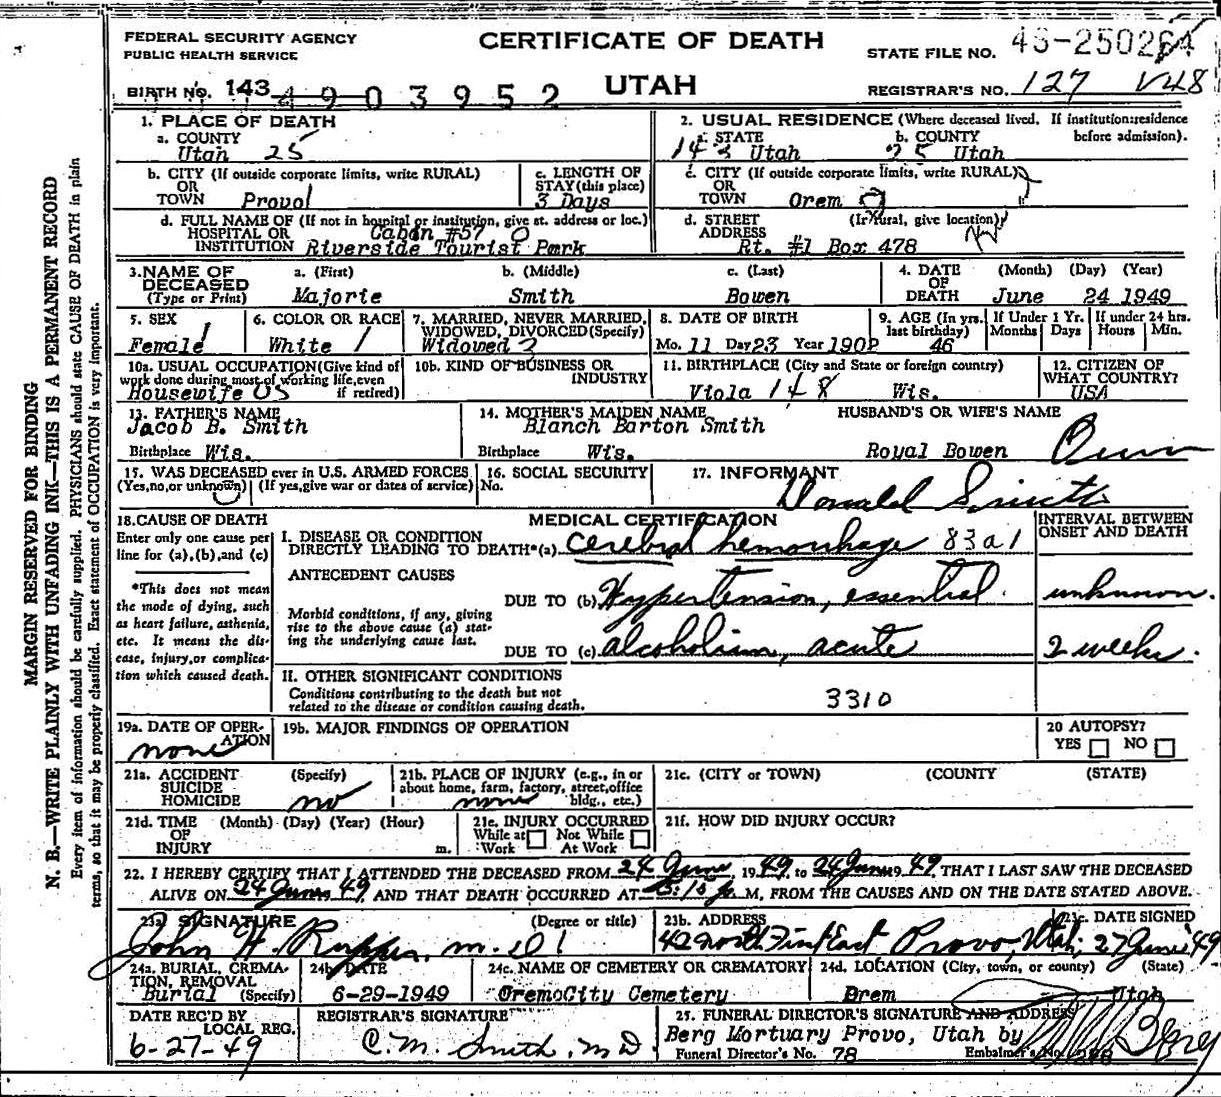 FEDERAL SECURITY AGENCY
PUBLIC HEALTH SERVICE
CERTIFICATE OF DEATH
UTAH
STATE FILE NO.
BIRTH NO. 143 4903952
REGISTRAR'S NO. 127 V48
MARGIN RESERVED FOR BINDING
N. B.—WRITE PLAINLY WITH UNFADING INK—THIS IS A PERMANENT RECORD
Every item of information should be carefully supplied. PHYSICIANS should state CAUSE OF DEATH in plain
terms, so that it may be properly classified. Exact statement of OCCUPATION is very important.
1. PLACE OF DEATH
a. COUNTY
Utah 25
2. USUAL RESIDENCE (Where deceased lived. If institution:residence
before admission).
a. STATE b. COUNTY
Utah 25 Utah
b. CITY (If outside corporate limits, write RURAL)
OR
TOWN Provo
c. LENGTH OF
STAY (this place)
3 Days
c. CITY (If outside corporate limits, write RURAL)
OR
TOWN Orem
d. FULL NAME OF (If not in hospital or institution, give st. address or loc.)
HOSPITAL OR Cabin #57
INSTITUTION Riverside Tourist Park
d. STREET (If rural, give location)
ADDRESS Rt. #1 Box 478
3. NAME OF
DECEASED
(Type or Print)
a. (First) b. (Middle) c. (Last)
Majorie Smith Bowen
4. DATE
OF
DEATH
(Month) (Day) (Year)
June 24 1949
5. SEX
Female 1
6. COLOR OR RACE
White 1
7. MARRIED, NEVER MARRIED,
WIDOWED, DIVORCED (Specify)
Widowed
8. DATE OF BIRTH
Mo. 11 Day 23 Year 1902
9. AGE (In yrs. last birthday)
46
If Under 1 Yr.
Months Days
If under 24 hrs.
Hours Min.
10a. USUAL OCCUPATION (Give kind of
work done during most of working life, even
if retired)
Housewife
10b. KIND OF BUSINESS OR
INDUSTRY
11. BIRTHPLACE (City and State or foreign country)
Viola 148 Wis.
12. CITIZEN OF
WHAT COUNTRY?
USA
13. FATHER'S NAME
Jacob B. Smith
Birthplace Wis.
14. MOTHER'S MAIDEN NAME
Blanch Barton Smith
Birthplace Wis.
HUSBAND'S OR WIFE'S NAME
Royal Bowen
15. WAS DECEASED ever in U.S. ARMED FORCES
(Yes, no, or unknown) (If yes, give war or dates of service)
16. SOCIAL SECURITY
No.
17. INFORMANT
Donald Smith
18. CAUSE OF DEATH
Enter only one cause per
line for (a), (b), and (c)
*This does not mean
the mode of dying, such
as heart failure, asthenia,
etc. It means the dis-
ease, injury, or complica-
tion which caused death.
MEDICAL CERTIFICATION
INTERVAL BETWEEN
ONSET AND DEATH
I. DISEASE OR CONDITION
DIRECTLY LEADING TO DEATH* (a) cerebral hemorrhage 83a1
ANTECEDENT CAUSES
Morbid conditions, if any, giving
rise to the above cause (a) stat-
ing the underlying cause last.
DUE TO (b) Hypertension, essential. unknown.
DUE TO (c) alcoholism, acute 2 weeks.
II. OTHER SIGNIFICANT CONDITIONS
Conditions contributing to the death but not
related to the disease or condition causing death.
3310
19a. DATE OF OPER-
ATION
none
19b. MAJOR FINDINGS OF OPERATION
20 AUTOPSY?
YES NO
21a. ACCIDENT
SUICIDE
HOMICIDE
(Specify)
no
21b. PLACE OF INJURY (e.g., in or
about home, farm, factory, street, office
bldg., etc.)
none
21c. (CITY or TOWN) (COUNTY) (STATE)
21d. TIME
OF
INJURY
(Month) (Day) (Year) (Hour)
m.
21e. INJURY OCCURRED
While at
Work
Not While
At Work
21f. HOW DID INJURY OCCUR?
22. I HEREBY CERTIFY THAT I ATTENDED THE DECEASED FROM 24 June, 1949, to 24 June, 1949 THAT I LAST SAW THE DECEASED
ALIVE ON 24 June 49, AND THAT DEATH OCCURRED AT M, FROM THE CAUSES AND ON THE DATE STATED ABOVE.
23a. SIGNATURE (Degree or title)
John H. Rupper, M.D.
23b. ADDRESS
42 North First East Provo, Utah,
23c. DATE SIGNED
27 June 49
24a. BURIAL, CREMA-
TION, REMOVAL
Burial (Specify)
24b. DATE
6-29-1949
24c. NAME OF CEMETERY OR CREMATORY
Orem City Cemetery
24d. LOCATION (City, town, or county) (State)
Orem Utah
DATE REC'D BY
LOCAL REG.
6-27-49
REGISTRAR'S SIGNATURE
C. M. Smith, M D.
25. FUNERAL DIRECTOR'S SIGNATURE AND ADDRESS
Berg Mortuary Provo, Utah by Berg
Funeral Director's No. 78 Embalmer's No.